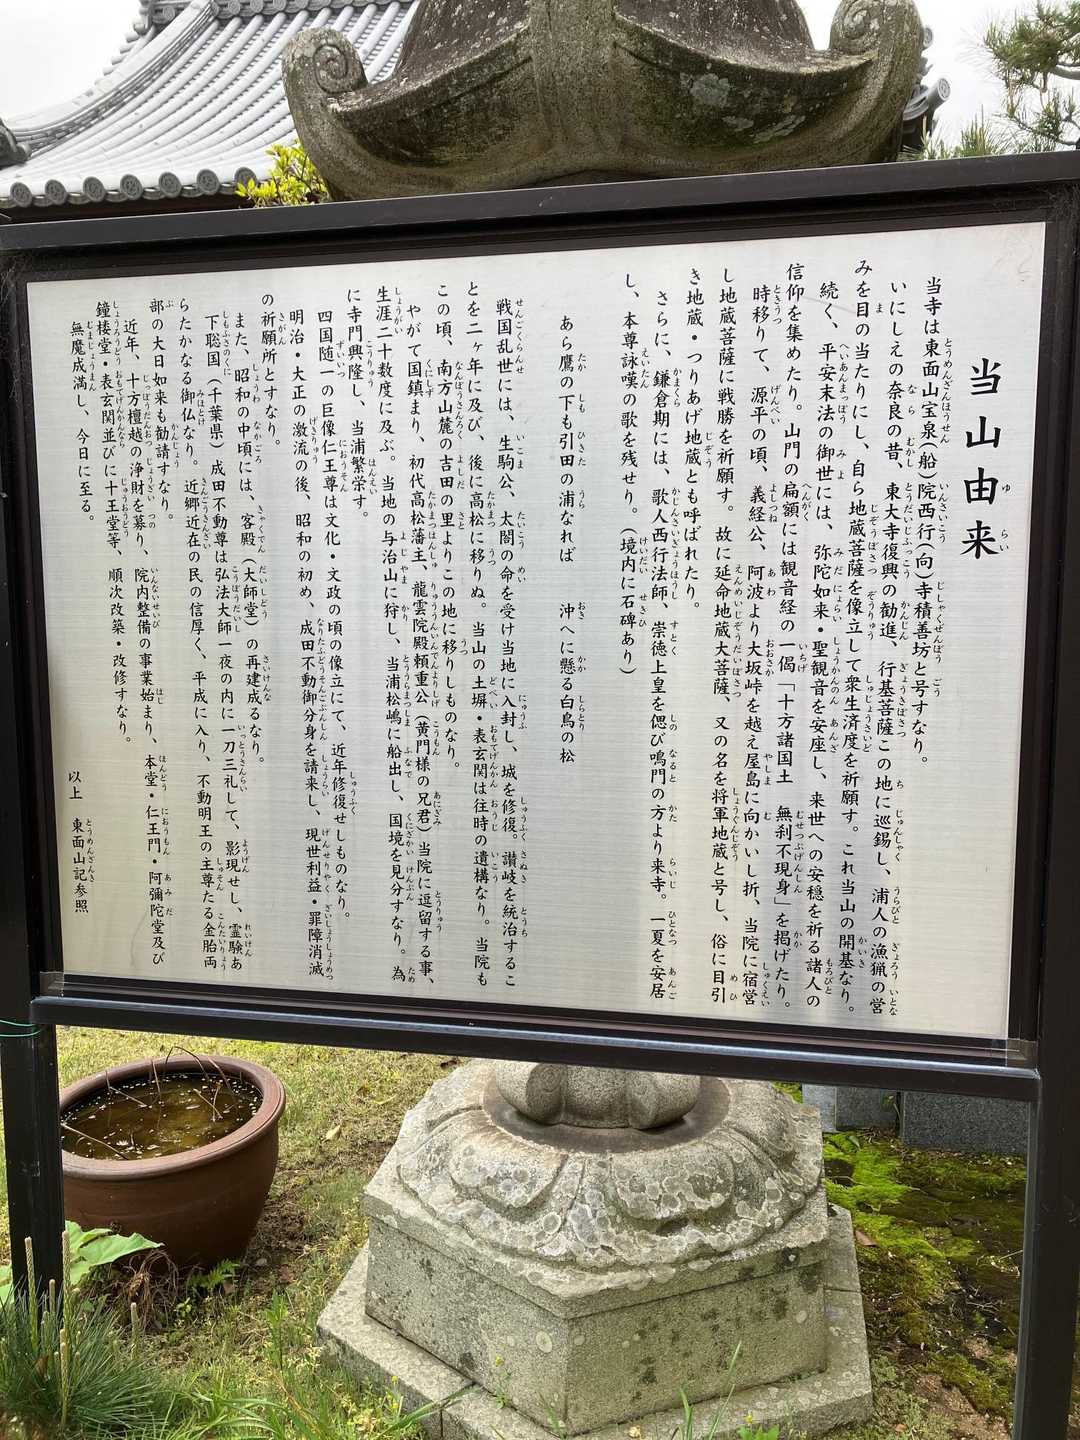 当山由来
当寺は東面山宝泉(船)院西行(向)寺積善坊と号すなり。
いにしえの奈良の昔、東大寺復興の勧進、行基菩薩この地に巡錫し、浦人の漁猟の営
みを目の当たりにし、自ら地蔵菩薩を像立して衆生済度を祈願す。これ当山の開基なり。
続く、平安末法の御世には、弥陀如来・聖観音を安座し、来世への安穏を祈る諸人の
信仰を集めたり。山門の扁額には観音経の一偈「十方諸国土 無刹不現身」を掲げたり。
時移りて、源平の頃、義経公、阿波より大坂峠を越え屋島に向かいし折、当院に宿営
し地蔵菩薩に戦勝を祈願す。故に延命地蔵大菩薩、又の名を将軍地蔵と号し、俗に目引
き地蔵・つりあげ地蔵とも呼ばれたり。
さらに、鎌倉期には、歌人西行法師、崇徳上皇を偲び鳴門の方より来寺。一夏を安居
し、本尊詠嘆の歌を残せり。(境内に石碑あり)
あら鷹の下も引田の浦なれば 沖へに懸る白鳥の松
戦国乱世には、生駒公、太閤の命を受け当地に入封し、城を修復。讃岐を統治するこ
とを二ヶ年に及び、後に高松に移りぬ。当山の土塀・表玄関は往時の遺構なり。当院も
この頃、南方山麓の吉田の里よりこの地に移りしものなり。
やがて国鎮まり、初代高松藩主、龍雲院殿頼重公(黄門様の兄君)当院に逗留する事、
生涯二十数度に及ぶ。当地の与治山に狩し、当浦松嶋に船出し、国境を見分すなり。為
に寺門興隆し、当浦繁栄す。
四国随一の巨像仁王尊は文化・文政の頃の像立にて、近年修復せしものなり。
明治・大正の激流の後、昭和の初め、成田不動御分身を請来し、現世利益・罪障消滅
の祈願所とすなり。
また、昭和の中頃には、客殿(大師堂)の再建成るなり。
下聡国(千葉県)成田不動尊は弘法大師一夜の内に一刀三礼して、影現せし、霊験あ
らたかなる御仏なり。近郷近在の民の信厚く、平成に入り、不動明王の主尊たる金胎両
部の大日如来も勧請すなり。
近年、十方檀越の浄財を募り、院内整備の事業始まり、本堂・仁王門・阿彌陀堂及び
鐘楼堂・表玄関並びに十王堂等、順次改築・改修すなり。
無魔成満し、今日に至る。
以上 東面山記参照